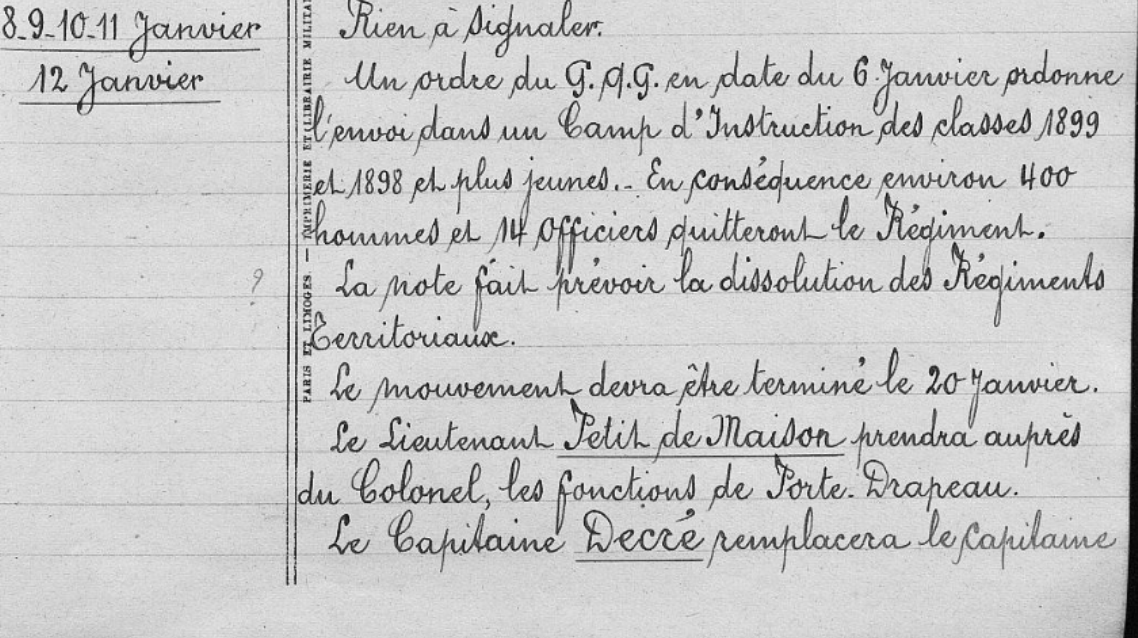 8_9_10_11 Janvier
Rien à signaler.
12 Janvier
Un ordre du G.Q.G. en date du 6 Janvier ordonne
l'envoi dans un Camp d'Instruction des classes 1899
et 1898 et plus jeunes._ En conséquence environ 400
hommes et 14 Officiers quitteront le Régiment.
?
La note fait prévoir la dissolution des Régiments
Territoriaux.
Le mouvement devra être terminé le 20 Janvier.
Le Lieutenant Petit de Maison prendra auprès
du Colonel, les fonctions de Porte-Drapeau.
Le Capitaine Decré remplacera le Capitaine
PARIS ET LIMOGES. — IMPRIMERIE ET LIBRAIRIE MILITA